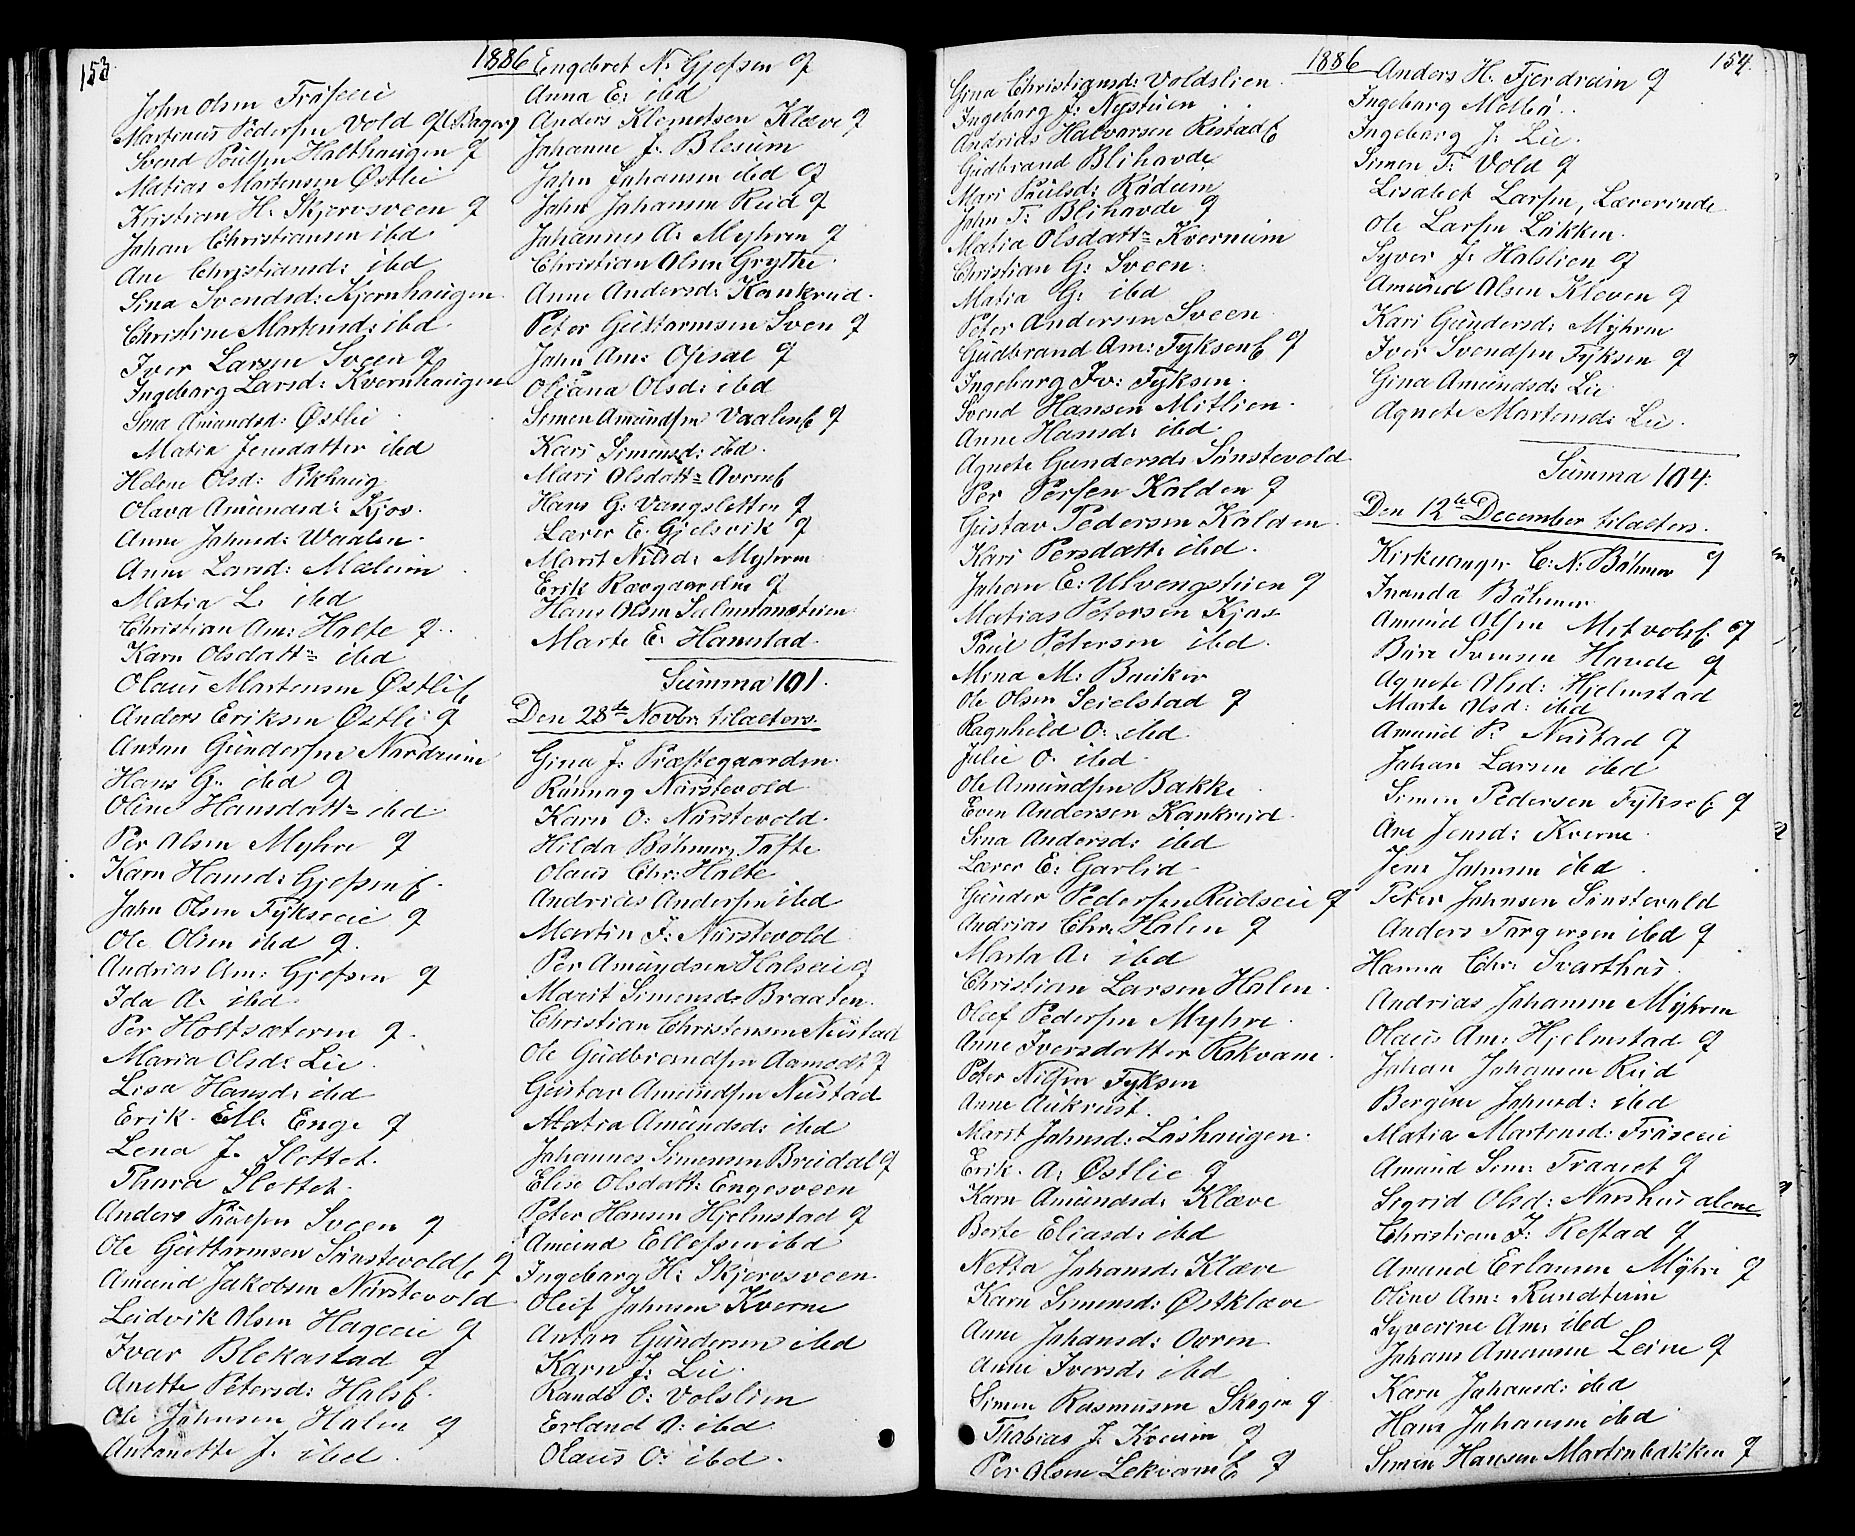 153
1886
John Olsen Fråseie
Martenus Pedersen Vold g (Bager)
Svend Poulsen Halthaugen g
Matias Martensen Østlie
Kristian H. Skjervsveen g
Johan Christiansen ibd
Ane Christiansd: ibd
Sina Svendsd: Kjernhaugen
Christine Martensd: ibd
Iver Larsen Sveen g
Ingeborg Larsd: Kvernhaugen
Sina Amundsd: Østlie
Matia Jensdatter ibd
Helene Olsd: Pikhaug
Olava Amundsd: Kjos.
Anne Johnsd: Waalen.
Anne Larsd: Mælum
Matia L. ibd
Christian Am: Halte g.
Karn Olsdatt= ibd
Olaus Martensen Østlie
Anders Eriksen Østli g
Anton Gundersen Nordrum
Hans G. ibd g
Oline Hansdatt= ibd
Per Olsen Myhre g
Karn Hansd: Gjefsen E.
John Olsen Fykseeie g
Ole Olsen ibd g.
Andrias Am: Gjefsen g
Ida A. ibd
Per Holtsæteren g.
Maria Olsd: Lie
Lisa Hansd: ibd
Erik Ell. Enge g
Lena J. Slottet.
Thara Slottet.
Anders Paulsen Sveen g
Ole Guttormsen Sønstevold E g
Amund Jakobsen Nørstevold
Ludvik Olsen Hageeie g
Ivar Blekastad g
Anette Petersd: Hals E.
Ole Johnsen Halen g
Antonette J. ibd.
Engebret N. Gjefsen g
Anna E: ibd
Anders Klemetsen Klæve g
Johanne J. Blesum
John Johansen ibd g
John Johansen Rud g
Johannes A. Myhren g
Christian Olsen Grythe.
Anne Andersd: Kankrud.
Peter Guttormsen Sveen g
John Am: Opsal g
Oliana Olsd: ibd
Simen Amundsen Vaalen E g
Kari Simensd: ibd.
Mari Olsdatt= Ovren E
Hans G. Vangsletten g
Lærer E. Gjelsvik g
Marit Nilsd: Myhren
Erik Ravgaarden g
Hans Olsen Salmonstuen
Marte E. Hanstad.
Summa 101.
Den 28de Novbr. tilalters.
Gina J. Præstegaarden.
Rønnog Nørstevold
Karn O: Nørstevold.
Hilda Bøhmer, Tofte
Olaus Chr: Halte
Andrias Andersen ibd
Martin J. Nørstevold
Per Amundsen Halseie g
Marit Simensd: Braaten.
Christian Christensen Nustad
Ole Gudbrandsen Aamodt g
Gustav Amundsen Nustad
Matia Amundsd: ibd
Johannes Simensen Bredal g
Elise Olsdatt: Engesveen
Peter Hansen Hjelmstad g
Amund Ellefsen ibd
Ingeborg H. Skjervsveen
Oluf Johnsen Kverne
Anton Gundersen ibd
Karn J. Lie
Randi O: Volslien
Erland O: ibd
Olaus O: ibd.
1886
154.
Gina Christiansd: Voldslien
Ingeborg J. Nystuen
Andrias Halvorsen Ristad E
Gudbrand Blihovde
Mari Paulsd: Rødum
John T. Blihovde g
Matia Olsdatt= Kvernum
Christian G. Sveen
Matia G. ibd
Peter Andersen Sveen
Gudbrand Am: Fyksen E g
Ingeborg Iv: Fyksen.
Svend Hansen Mitlien.
Anne Hansd: ibd
Agnete Gundersd: Sønstevold
Per Persen Kolden g
Gustav Pedersen Kolden
Kari Persdatt: ibd.
Johan E: Ulvengstuen g
Matias Petersen Kjos
Paul Petersen ibd.
Mina M. Bauker
Ole Olsen Seielstad g
Ragnhild O. ibd.
Julie O. ibd.
Ole Amundsen Bakke.
Even Andersen Kankrud.
Sina Andersd: ibd
Lærer E. Garlid
Gunder Pedersen Rudseie g
Andrias Chr. Halen g
Marta A. ibd
Christian Larsen Halen.
Olaf Pedersen Myhre.
Anne Iversdatter Rikvam.
Peter Nilsen Fyksen
Anne Aukrust.
Marit Johnsd: Lashaugen.
Erik. A. Østlie g
Karn Amundsd: Klæve
Berte Eliasd: ibd
Netta Johansd: Klæve
Karn Simensd: Østklæve
Anne Johansd: Ovren
Anne Iversd: ibd
Simen Rasmusen Skogen g
Thobias J. Kveum g
Per Olsen Lekvam E g
Anders H. Fjerdrum g
Ingeborg Melbø..
Ingeborg J. Lie.
Simen T: Vold g
Lisabet Larsen, Lærerinde
Ole Larsen Løkken.
Syver J. Halslien g
Amund Olsen Kleven g
Kari Gundersd: Myhren
Iver Svendsen Fyksen g
Gina Amundsd: Lie
Agnete Martensd: Lie.
Summa 104.
Den 12te December tilalters.
Kirkesanger C: N: Bøhmer g
Inanda Bøhmer
Amund Olsen Metvols E. g
Bure Svensen Havde g
Agnete Olsd: Hjelmstad
Marte Olsd: ibd
Amund P. Nustad g
Johan Larsen ibd
Simen Pedersen Fykse E. g
Ane Jensd: Kverne.
Jens Johnsen ibd.
Peter Johnsen Sønstevold
Anders Targersen ibd g
Hanna Chr: Svarthus.
Andrias Johansen Myhren
Olaus Am: Hjelmstad g
Johan Johansen Rud
Bergine Johnsd: ibd
Matia Martensd: Fråseeie
Amund Sim: Traaset g
Sigrid Olsd: Nørshus alene
Christian J. Restad g
Amund Erlansen Myhre g
Oline Am: Rundtum
Syverine Am: ibd
Johans Amansen Leine g
Karn Johansd: ibd
Hans Johansen ibd
Simen Hansen Martinbakken g